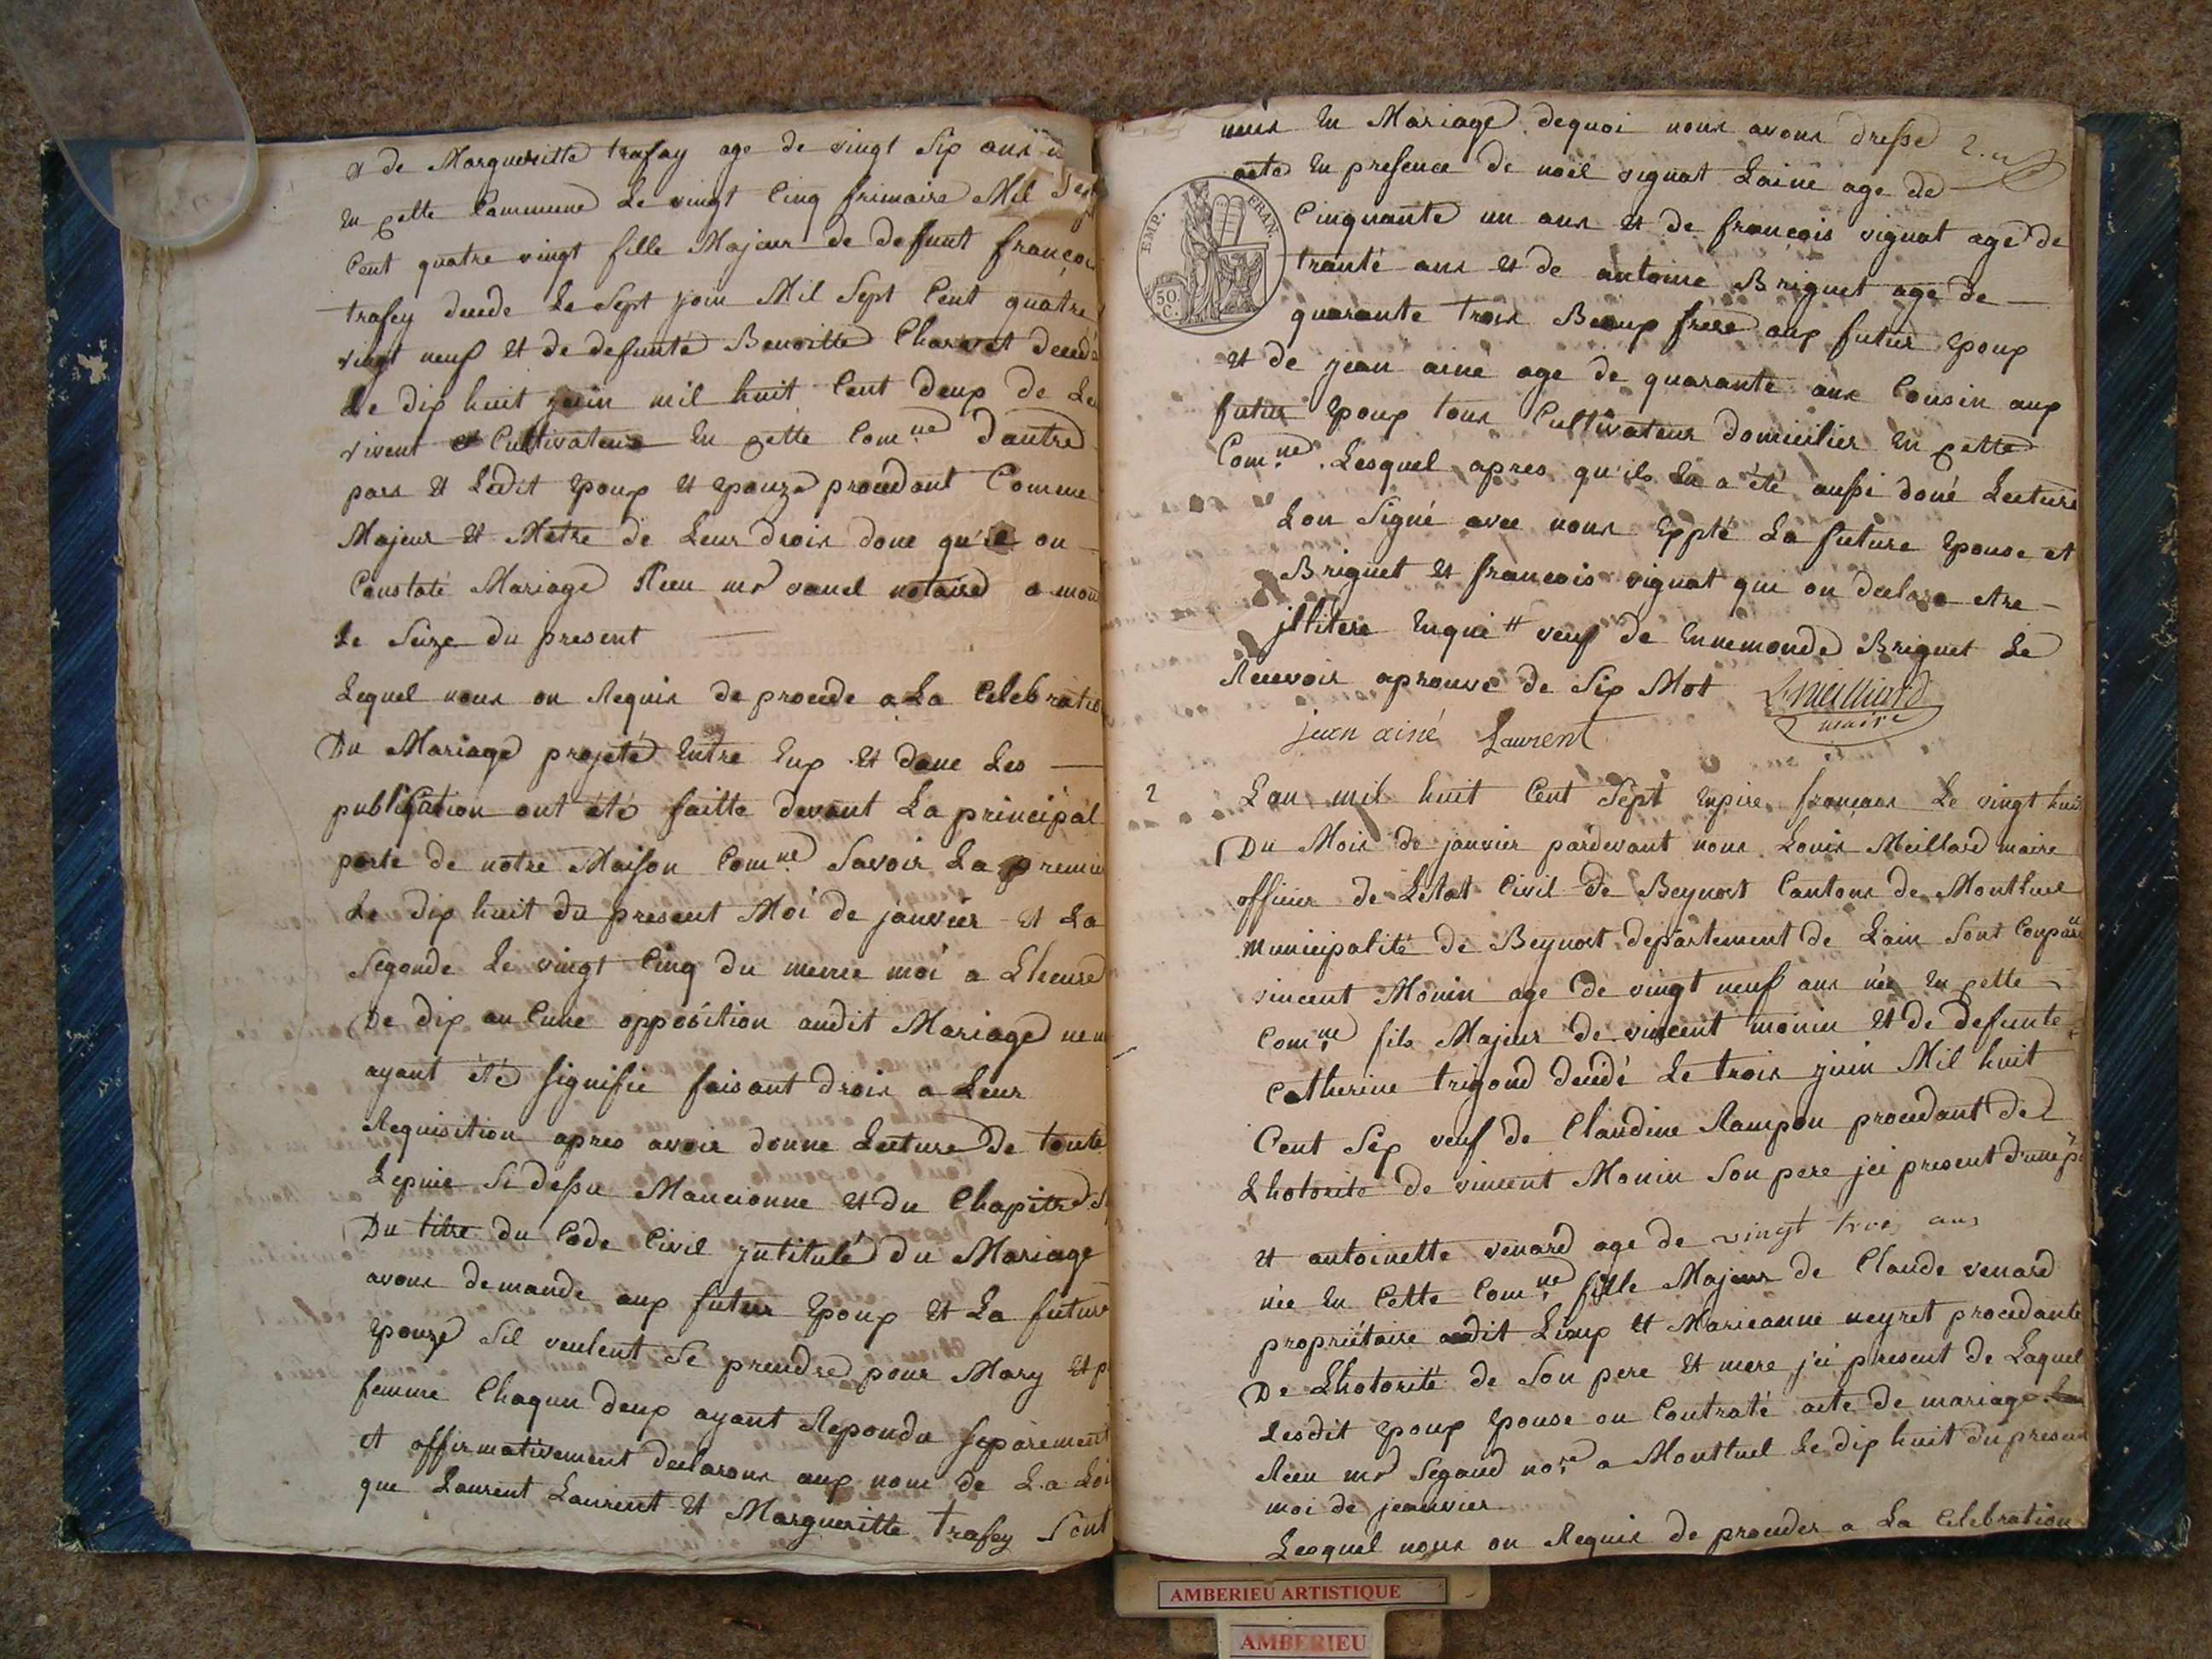 et de Margueritte trafay age de vingt Six ans
En cette Commune Le vingt Cinq frimaire Mil Sept
Cent quatre vingt fille Majeur de defunt françois
trafey decede Le Sept join Mil Sept Cent quatre
vingt neuf Et de defunte Benoitte Charvet decedé
Le dix huit juin mil huit Cent deux de Le
vivent Cultivateur En cette Comne d'autre
pars Et Ledit Epoux Et Epouze procedant Comme
Majeur Et Metre de Leur drois donc qu'il on
Constaté Mariage Reeu mr vanel notaire a mon
Le Seize du present
Lequel nous on Requis de procede a La Celebratio
Du Mariage projeté Entre Eux Et donc Les
publication ont été faitte devant La principal
porte de notre Maison Comne Savoir La premie
Le dix huit du present Moi de janvier Et La
Segonde Le vingt Cinq du meme moi a L'heure
De dix au Cune opposition audit Mariage
ayant été signifie faisant drois a Leur
Requisition apres avoir donne Lecture De toute
Lepiie Si dessu Mancionne Et du Chapitre
Du titre du Code Civil jntitulé du Mariage
avons demande aux futeur Epoux Et La future
Epouze Sil veulent Se prendre pour Mary Et p
femme Chaqun deux ayant Repondu Separement
Et affirmativement declarons aux nom de La Loi
que Laurent Laurent Et Margueritte trafey Sont
unis En Mariage dequoi nous avons dresse
2.
acte En presence de noël vignat Lainé age de
EMP. FRAN.
50. C.
Cinquante un ans Et de françois vignat age de
tranté ans Et de antoine Briguet age de
quarante trois Beaux frere aux futur Epoux
Et de jean ainé age de quarante ans Cousin aux
futur Epoux tous Cultivateur domicilier En cette
Comne. Lesquel apres qu'ils En a été aussi doné Lecture
Lon Signé avec nous Expté La future Epouse et
Briguet Et francois vignat qui on declare etre
jllitere Enqui # veuf de Ennemonde Briguet Le
Recevoir aprouvé de Six Mot
L. meilliard
maire
jean ainé Laurent
2
Lan mil huit Cent Sept Enpire françaes Le vingt huit
Du Mois de janvier pardevant nous Louis Meillard maire
officier de Letat Civil de Beynost Cantons de Montluel
municipalité de Beynost departement de Lain Sont Conparu
vincent Monin age de vingt neuf ans née En cette
Comne fils Majeur de vincent monin Et de defunte
Catherine trigond decedé Le trois juin Mil huit
Cent Six veuf de Claudine Rampon procedant de
Lhotorité de vincent Monin Son pere jci present d'une p
Et antoinette venard age de vingt trois ans
née En Cette Comne fille Majeur de Claude venard
propriétaire audit Lieux Et Marieanne neyret procedante
De Lhotorité de Son pere Et mere jci present de Laquel
Lesdit Epoux Epouse on Contraté acte de mariage
Reeu mr Segaud nore a Montluel Le dix huit du present
moi de jeanvier
Lesquel nous on Requis de proceder a La Celebration
AMBERIEU ARTISTIQUE
AMBERIEU